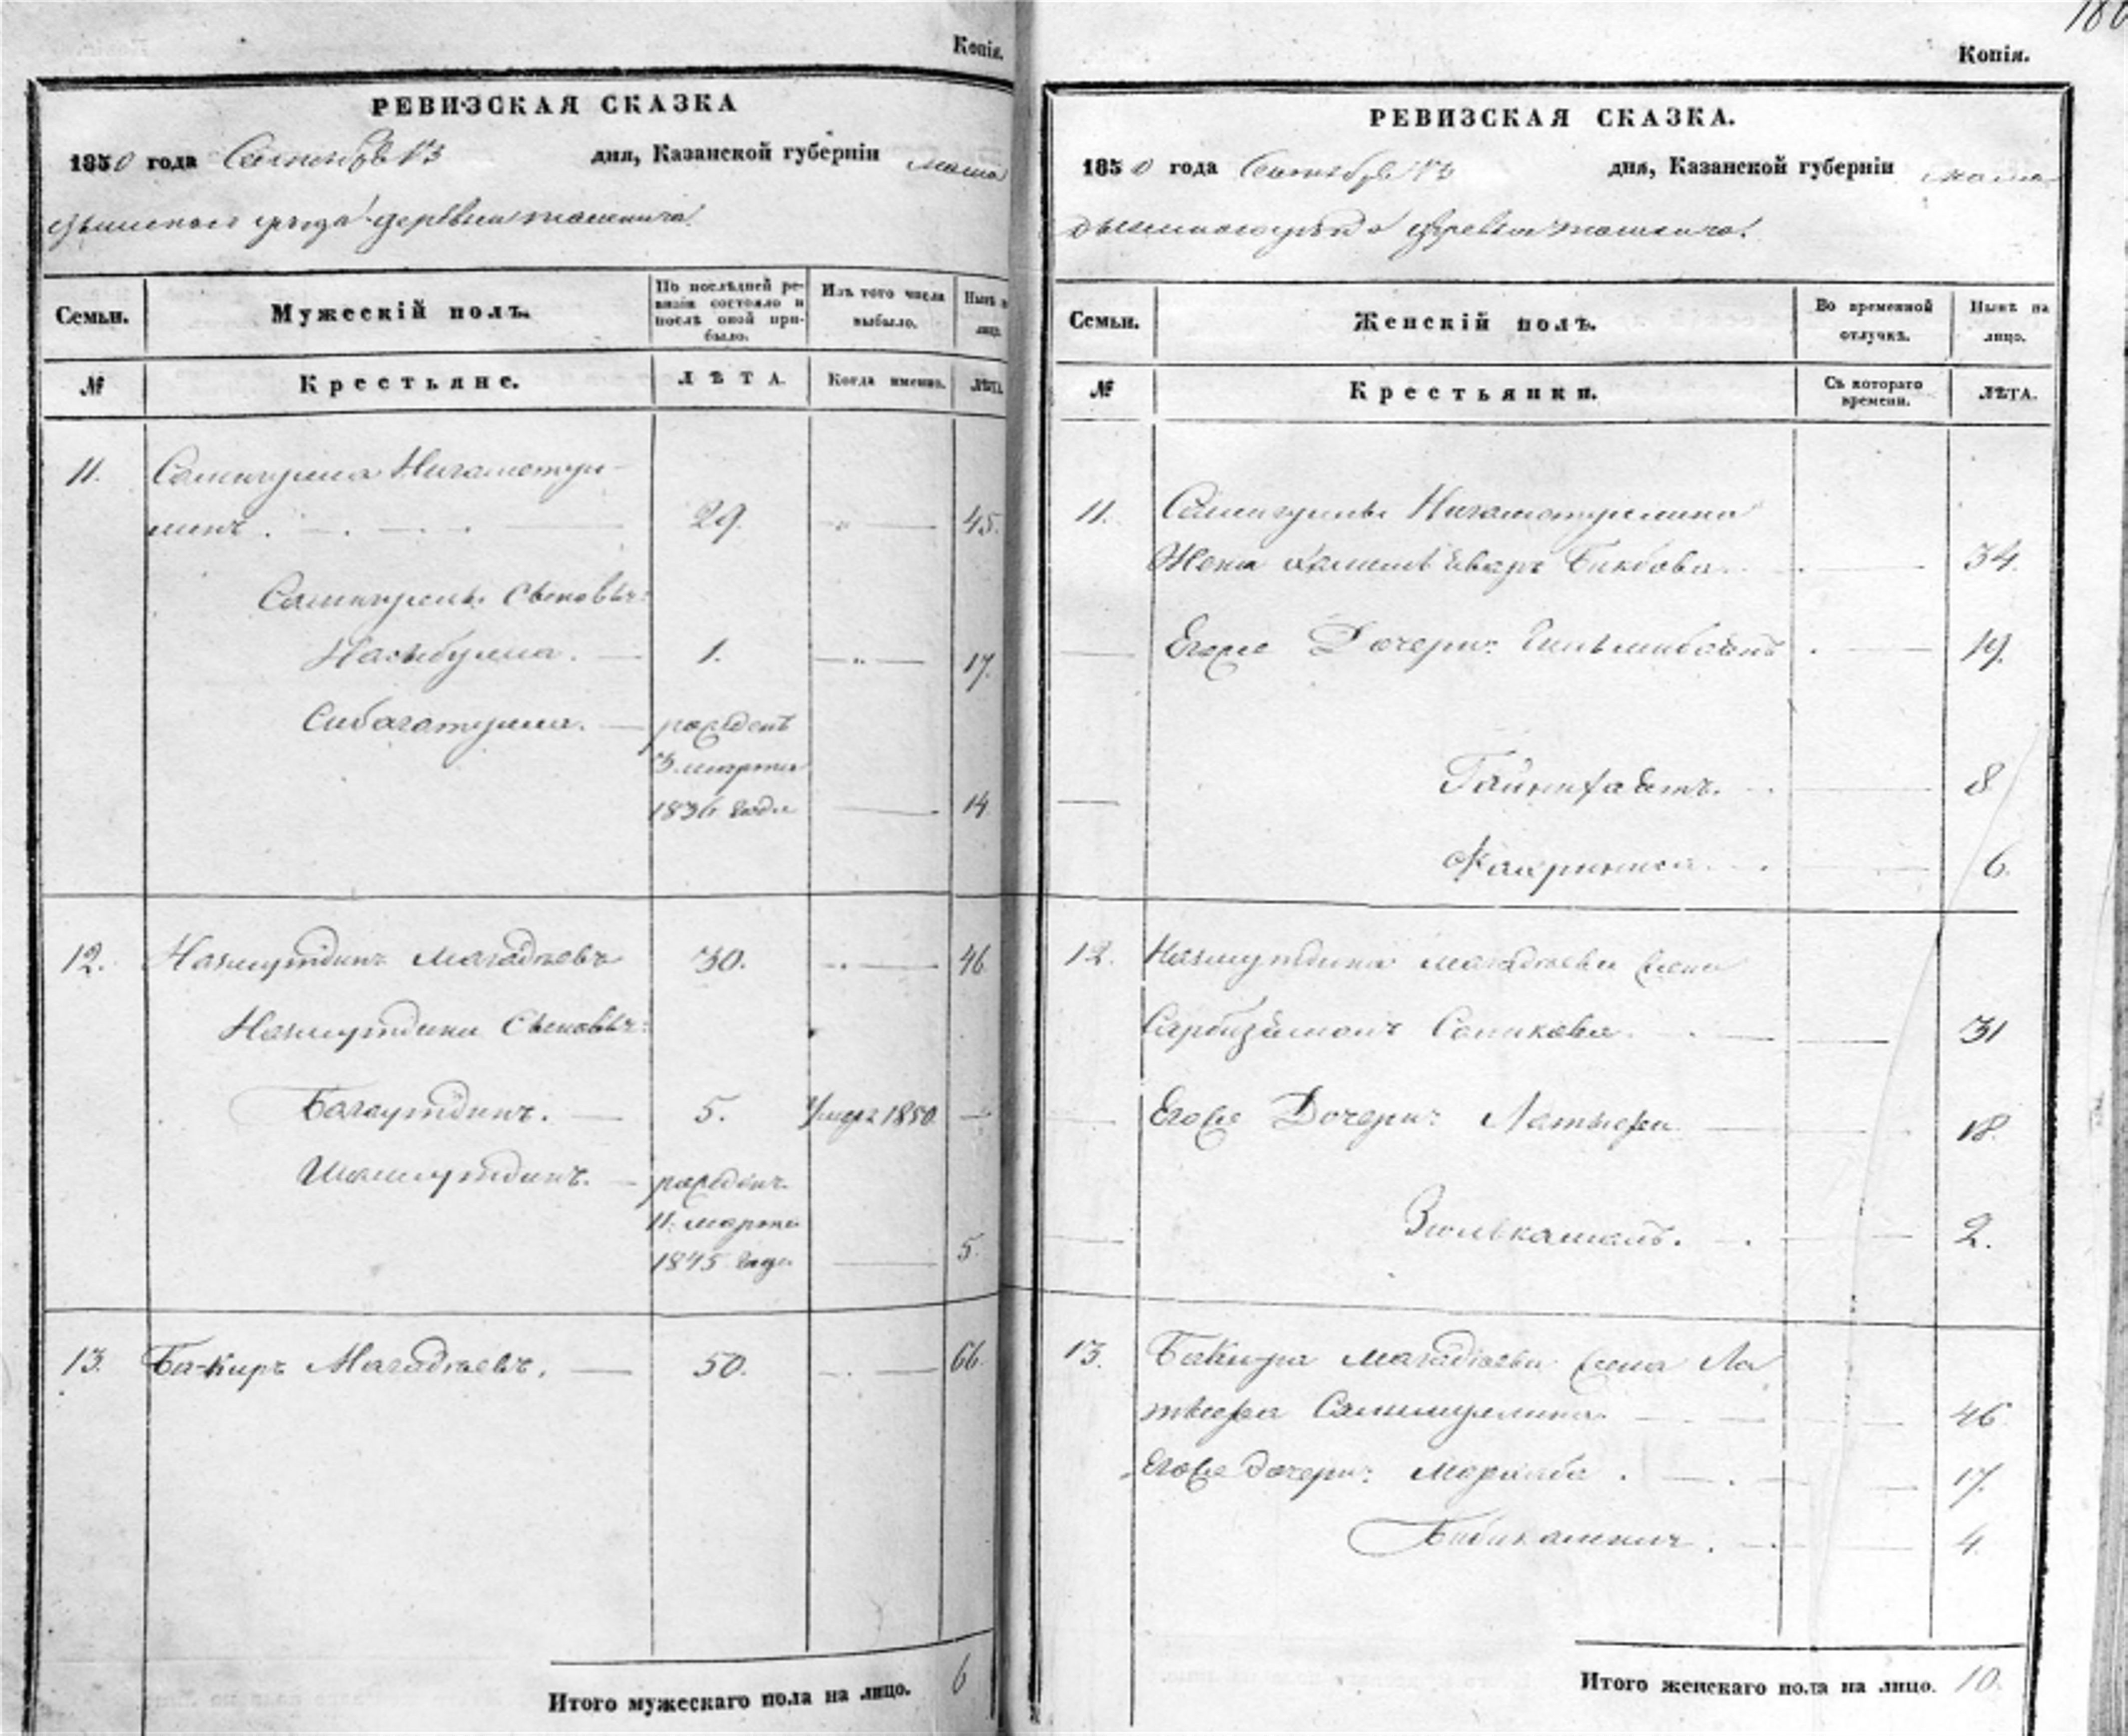 186
Копія.
РЕВИЗСКАЯ СКАЗКА
1850 года Сентября 13 дня, Казанской губерніи мама
дышскаго уѣзда деревни
Семьи.
Мужескій полъ.
По послѣдней ре-
визіи состояло и
послѣ оной при-
было.
Изъ того числа
выбыло.
Нынѣ н
лицо.
№
Крестьяне.
ЛѢТА.
Когда именно.
ЛѢТА.
11. Самигулла Нигаметул-
линъ. 29. 45.
Самигуллы Сыновья:
Насыбулла. 1. 17.
Сибагатулла. рожденъ
3 марта
1836 года 14
12. Назмутдинъ Магадіевъ 30. 46
Назмутдина Сыновья:
Багаутдинъ. 5. Умеръ 1850.
Шамсутдинъ. рожденъ
11. марта
1845 года 5.
13. Бакиръ Магадіевъ. 50. 66.
Итого мужескаго пола на лицо. 6
Копія.
РЕВИЗСКАЯ СКАЗКА.
1850 года Сентября 13 дня, Казанской губерніи мама
дышскаго уѣзда деревни
Семьи.
Женскій полъ.
Во временной
отлучкѣ.
Нынѣ на
лицо.
№
Крестьянки.
Съ котораго
времени.
ЛѢТА.
11. Самигуллы Нигаметуллина
Жена Бикбова. 34.
Егоже Дочери: 19.
8
6.
12. Назмутдина Магадіева жена
Сарбиземалъ Садикова 31
Егоже Дочери: Латыфа 18.
Зюлькамалъ. 2.
13. Бакира Магадіева жена Ла
тыфа Самигуллина 46
Егоже дочери: 17.
Бибикамалъ. 4.
Итого женскаго пола на лицо. 10.